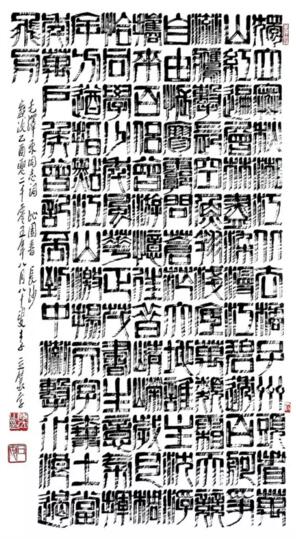 獨立寒秋湘江北去橘子洲頭看萬
山紅遍層林盡染漫江碧透百舸爭
流鷹擊長空魚翔淺底萬類霜天競
自由悵寥廓問蒼茫大地誰主沉浮
攜來百侶曾遊憶往昔崢嶸歲月稠
恰同學少年風華正茂書生意氣揮
斥方遒指點江山激揚文字糞土當
年萬戶侯曾記否到中流擊水浪遏
飛舟
毛澤東同志詞 沁園春 長沙
歲次乙酉